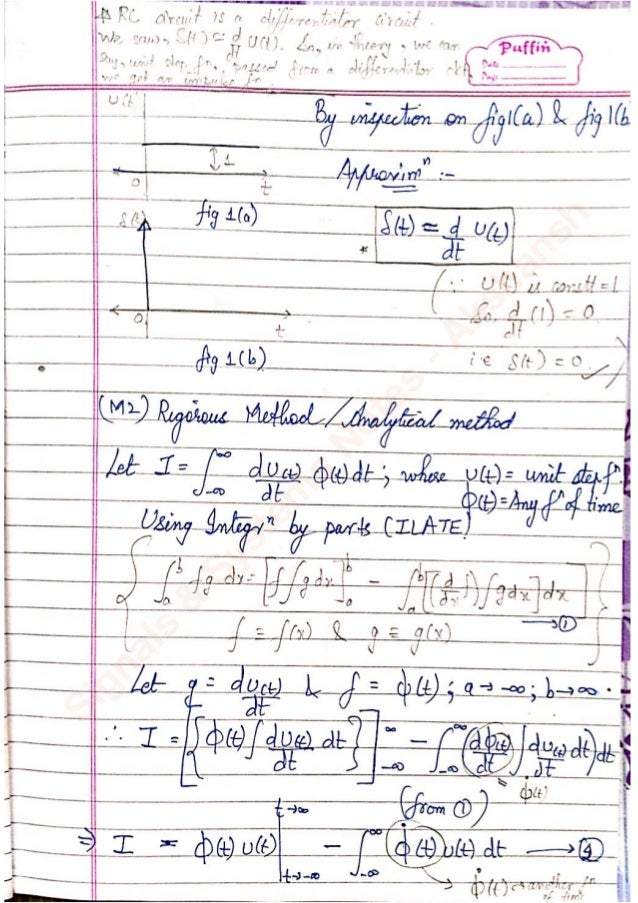 * RC circuit is a differentiator circuit.
We saw, δ(t) ≃ d/dt U(t). So, in theory, we can
say, unit step fn, passed from a differentiator ckt,
we get an impulse fn.
Puffin
Date
Page
U(t
By inspection on fig1(a) & fig1(b
1
0
t
Approximⁿ :-
fig 1(a)
δ(t)
* δ(t) ≃ d/dt U(t)
(∵ U(t) is constt = 1
So, d/dt (1) = 0
0
t
i.e δ(t) = 0 )
fig 1(b)
(M2) Rigorous Method / Analytical method
Let I = ∫_{-∞}^{∞} dU(t)/dt ϕ(t) dt ; where U(t) = unit step fⁿ.
ϕ(t) = Any fⁿ of time
Using Integrⁿ by parts (ILATE)
{ ∫_a^b fg dx = [f∫g dx]_a^b - ∫_a^b [(d/dx f) ∫g dx] dx → ①
f ≡ f(x) & g ≡ g(x) }
Let g = dU(t)/dt & f = ϕ(t) ; a → -∞ ; b → ∞ .
∴ I = [{ϕ(t) ∫ dU(t)/dt dt}]_{-∞}^{∞} - ∫_{-∞}^{∞} (dϕ(t)/dt ∫ dU(t)/dt dt) dt
= ϕ̇(t)
(from ①)
⇒ I = ϕ(t) U(t) |_{t→-∞}^{t→∞} - ∫_{-∞}^{∞} ϕ̇(t) U(t) dt → ②
ϕ̇(t) → another fⁿ
of time
Signals & Systems Notes - Akshansh